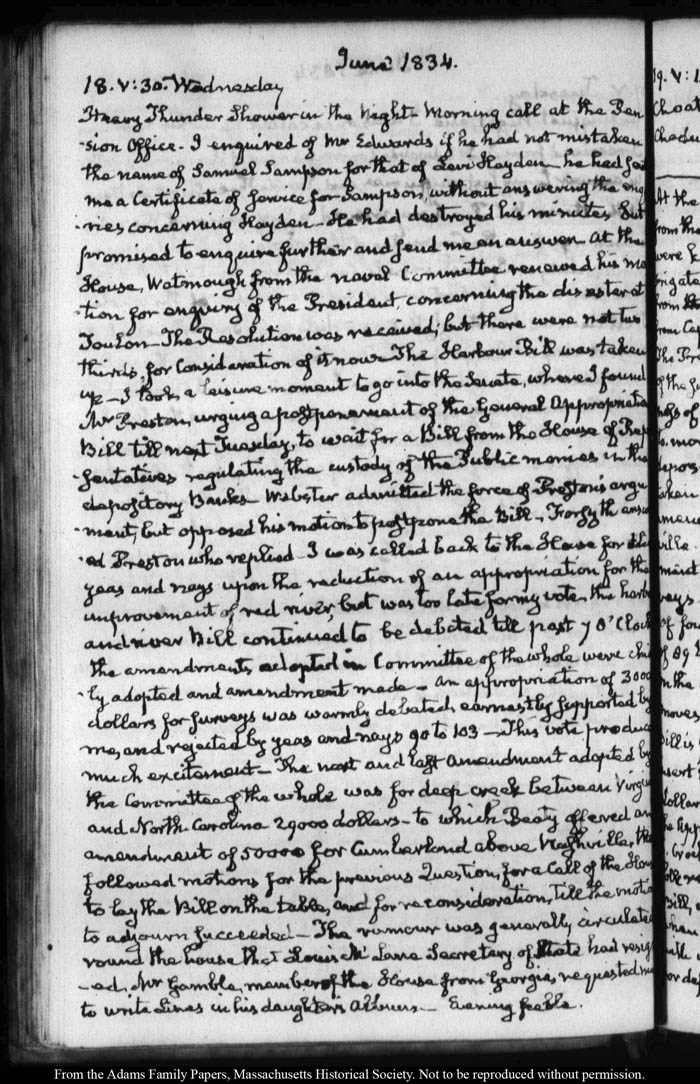 June 1834.
18. V:30. Wednesday
Heavy Thunder Shower in the Night - Morning call at the Pen
-sion Office - I enquired of Mr Edwards if he had not mistaken
the name of Samuel Sampson for that of Levi Hayden - he had sent
me a Certificate of service for Sampson, without answering the enq
-ries concerning Hayden - He had destroyed his minutes but
promised to enquire further and send me an answer. At the
House, Watmough from the naval Committee renewed his mo
-tion for enquiry of the President concerning the disaster at
Toulon - The Resolution was received; but there were not two
thirds for Consideration of it now. The Harbour Bill was taken
up - I took a leisure moment to go into the Senate, where I found
Mr Preston, urging a postponement of the General Appropriation
Bill till next Tuesday, to wait for a Bill from the House of Rep
-sentatives regulating the custody of the Public monies in the
depository Banks - Webster admitted the force of Preston's argu
-ment, but opposed his motion to postpone the Bill - Forsyth answ
-ed Preston who replied - I was called back to the House for the
yeas and nays upon the reduction of an appropriation for the
improvement of red river, but was too late for my vote. the harb
and river Bill continued to be debated till past 7 O'Clock
The amendments adopted in Committee of the whole were chie
-ly adopted and amendment made - An appropriation of 3000
dollars for surveys was warmly debated, earnestly supported by
me, and rejected by yeas and nays 90 to 103 - This vote produc
much excitement - The next and last amendment adopted by
the Committee of the whole was for deep creek between Virgi
and North Carolina 29000 dollars - to which Beaty offered an
amendment of 50000 for Cumberland above Nashville, the
followed motions for the previous Question, for a Call of the Hou
to lay the Bill on the table, and for reconsideration, till the motio
to adjourn succeeded - The rumour was generally circulate
round the house that Louis McLane Secretary of State had resig
-ed. Mr Gamble, member of the House from Georgia, requested me
to write Lines in his daughter's Album - Evening feeble.
19. V:1
Choat
Chadw
At the
from the
were
from
from Cap
The Pre
of the
of
mor
ville.
maint
yeas
of fou
of 89
in the
moves
Bill is
dollar
Bill,
when
From the Adams Family Papers, Massachusetts Historical Society. Not to be reproduced without permission.